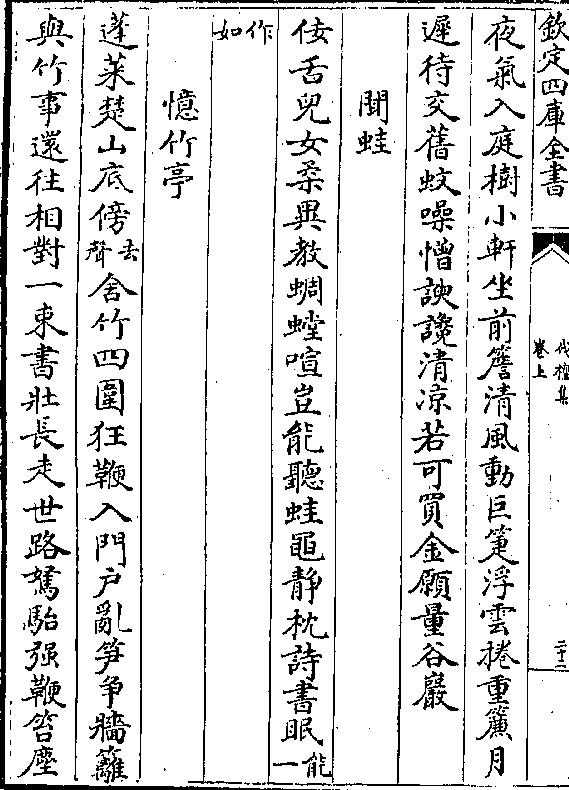 欽定四庫全書
伐檀集
卷上
二十二
夜氣入庭樹小軒坐前簷清風動巨箑浮雲捲重簾月
遲待交舊蚊噪憎諛讒清涼若可買金願量谷巖
聞蛙
佞舌兒女柔異教蜩螗喧豈能聽蛙黽靜枕詩書眠能一
作如
憶竹亭
蓬萊楚山底傍去聲舍竹四圍狂鞭入門戶亂笋争牆籬
與竹事還往相對一束書壯長走世路駑駘强鞭笞塵